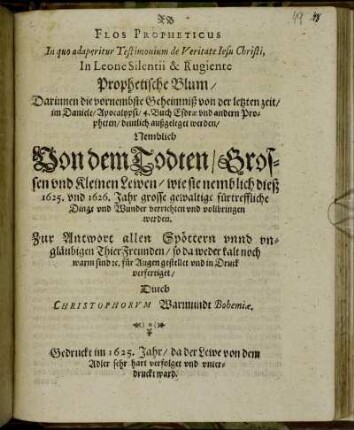 49 48
FLOS PROPHETICUS
In quo adaperitur Testimonium de Veritate Iesu Christi,
In Leone Silentii & Rugiente
Prophetische Blum/
Darinnen die vornembste Geheimniß von der letzten zeit/
im Daniele/ Apocalypsi/ 4. Buch Esdræ vnd andern Pro-
pheten/ deutlich außgeleget werden/
Nemblich
Von dem Todten/ Gros-
sen vnd Kleinen Lewen/ wie sie nemblich dieß
1625. vnd 1626. Jahr grosse gewaltige fürtreffliche
Dinge vnd Wunder verrichten vnd vollbringen
werden.
Zur Antwort allen Spöttern vnnd vn-
gläubigen Thier Freunden/ so da weder kalt noch
warm sind ꝛc. für Augen gestellet vnd in Druck
verfertiget/
Durch
CHRISTOPHORVM Warmundt Bohemiæ.
Gedruckt im 1625. Jahr/ da der Lewe von dem
Adler sehr hart verfolget vnd vnter-
druckt ward.